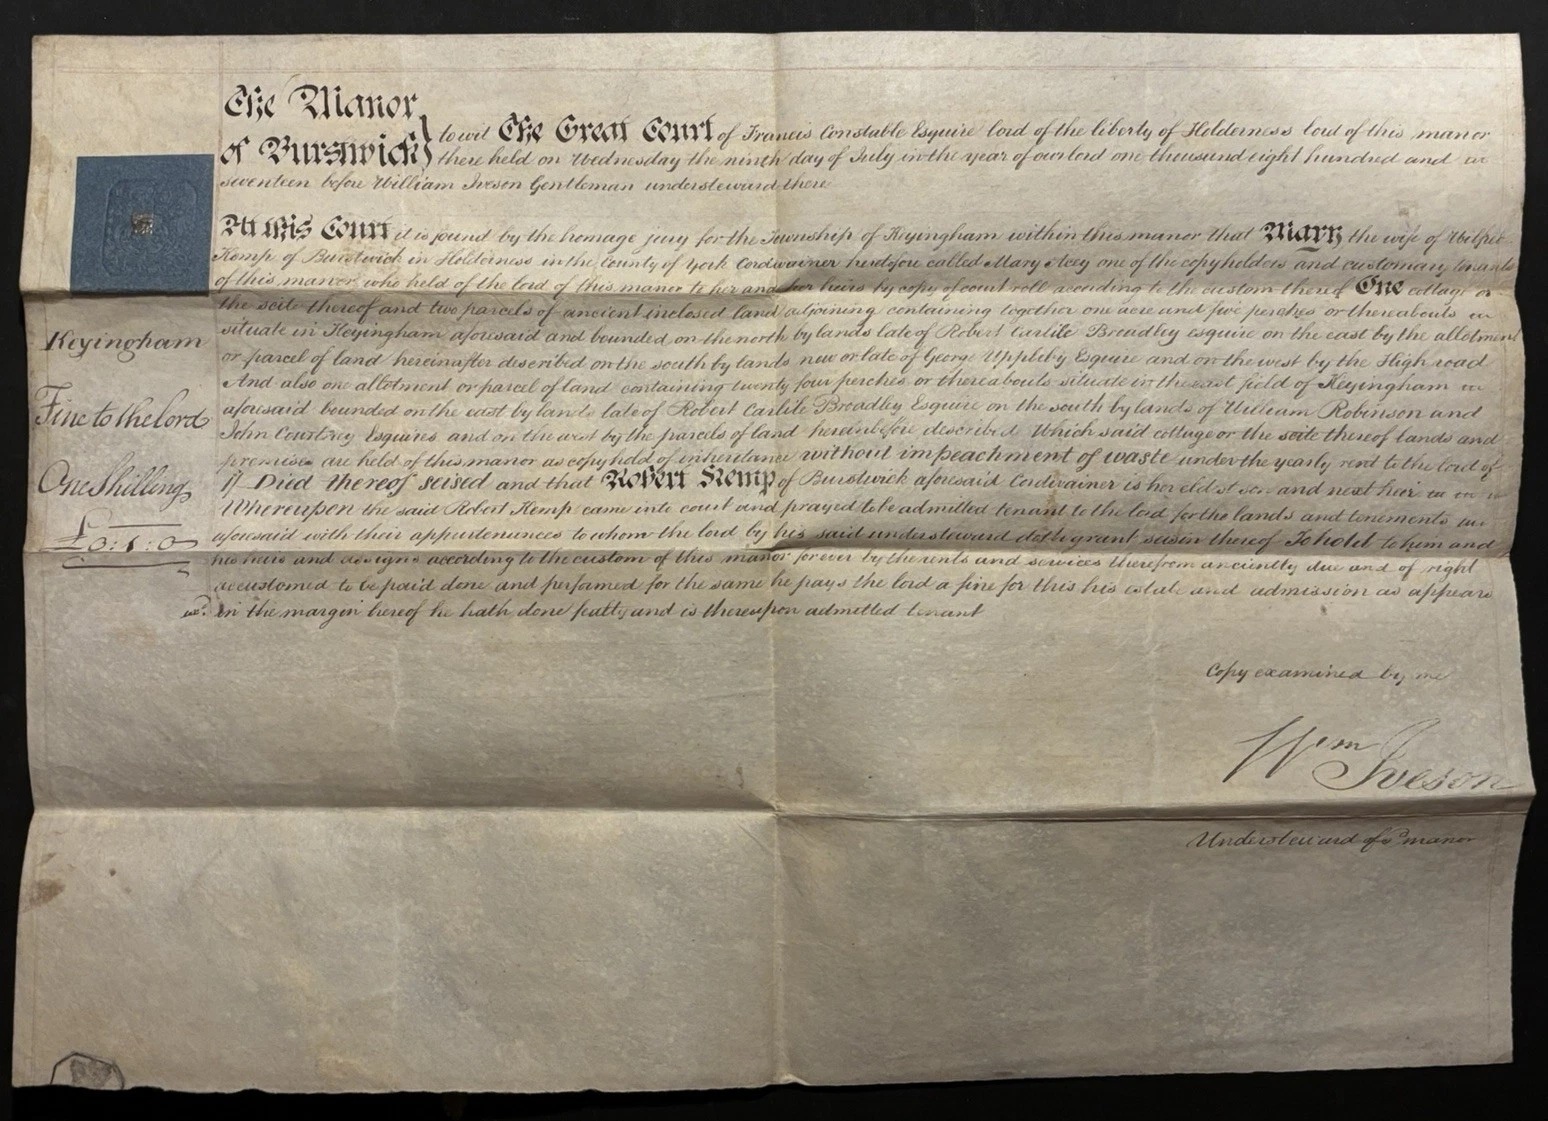 The Manor
of Burstwick } to wit The Great Court of Francis Constable Esquire lord of the liberty of Holderness lord of this manor
there held on Wednesday the ninth day of July in the year of our lord one thousand eight hundred and
seventeen before William Iveson Gentleman understeward there
At this Court it is found by the homage jury for the Township of Keyingham within this manor that Mary the wife of
Kemp of Burstwick in Holderness in the County of York Cordwainer heretofore called Mary one of the copyholders and customary tenants
of this manor who held of the lord of this manor to her and her heirs by copy of court roll according to the custom thereof One cottage or
the scite thereof and two parcels of ancient inclosed land adjoining containing together one acre and five perches or thereabouts
situate in Keyingham aforesaid and bounded on the north by lands late of Robert Carlile Broadley esquire on the east by the allotment
or parcel of land hereinafter described on the south by lands now or late of George Uppleby Esquire and on the west by the High road
And also one allotment or parcel of land containing twenty four perches or thereabouts situate in the east field of Keyingham
aforesaid bounded on the east by lands late of Robert Carlile Broadley Esquire on the south by lands of William Robinson and
John Courtney Esquires and on the west by the parcels of land hereinbefore described Which said cottage or the scite thereof lands and
premises are held of this manor as copyhold of inheritance without impeachment of waste under the yearly rent to the lord of
Died thereof seised and that Robert Kemp of Burstwick aforesaid Cordwainer is her eldest son and next heir
Whereupon the said Robert Kemp came into court and prayed to be admitted tenant to the lord for the lands and tenements
aforesaid with their appurtenances to whom the lord by his said understeward doth grant seisin thereof To hold to him and
his heirs and assigns according to the custom of this manor for ever by the rents and services therefrom anciently due and of right
accustomed to be paid done and performed for the same he pays the lord a fine for this his estate and admission as appears
in the margin hereof he hath done fealty and is thereupon admitted tenant
Keyingham
Fine to the lord
One Shilling
£0:1:0
Copy examined by me
Wm Iveson
Understeward of sd manor